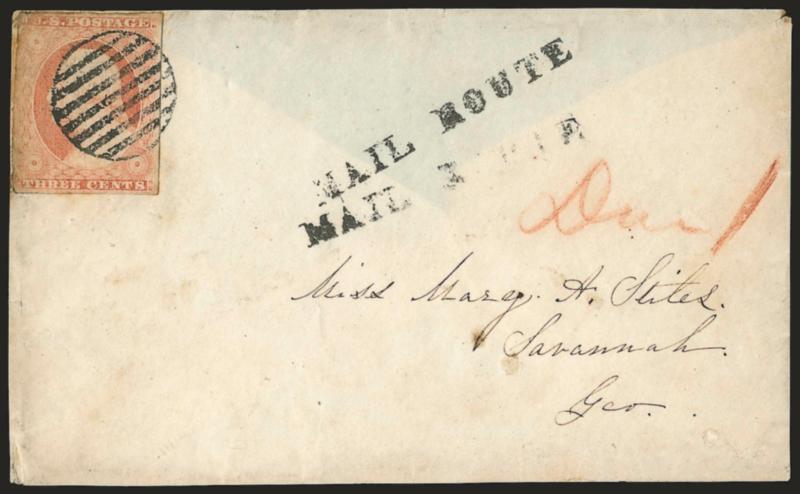 U.S. POSTAGE.
THREE CENTS.
MAIL ROUTE
MAIL
Due 1
Miss Mary. A. Stiles.
Savannah.
Geo.